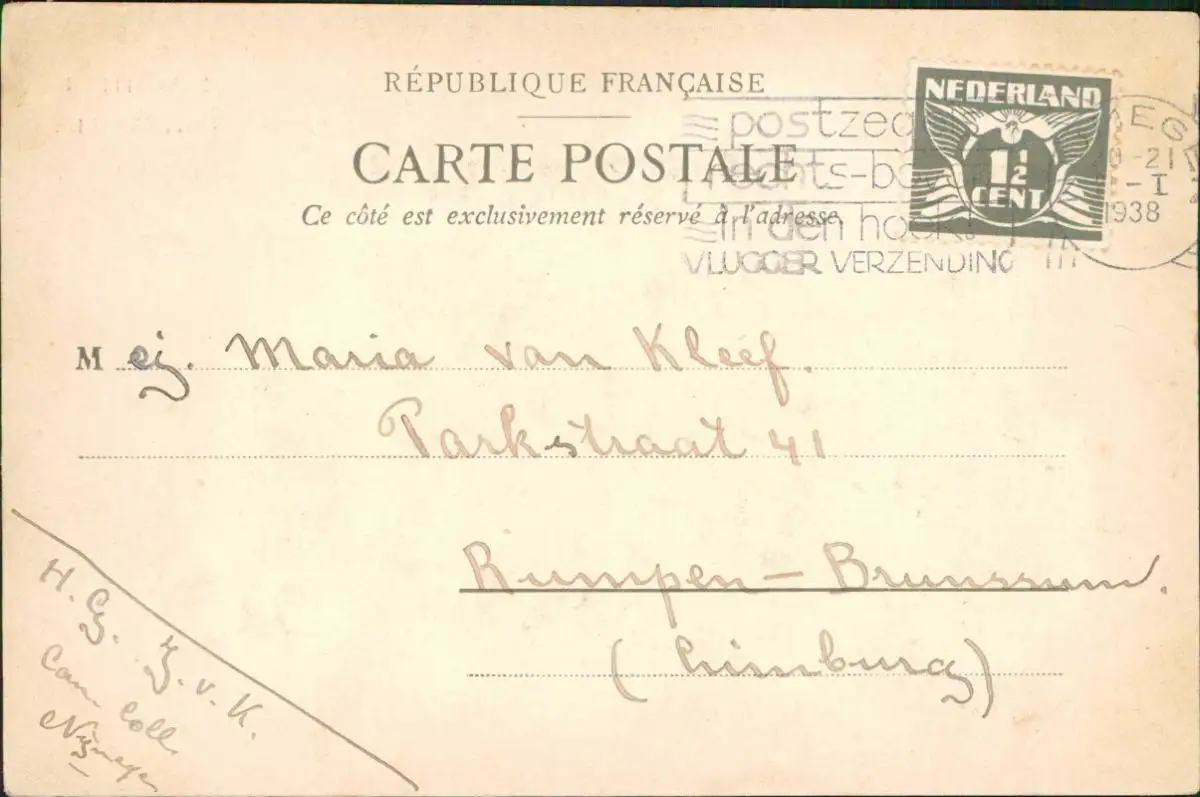 RÉPUBLIQUE FRANÇAISE
CARTE POSTALE
Ce côté est exclusivement réservé à l'adresse
NEDERLAND
1½
CENT
rechts-bov
in den hoek!
VLUGGER VERZENDING
20-21
-I
1938
Mej. Maria van Kleef.
Parkstraat 41
Rumpen - Brunssum.
(Limburg)
H. G. J. v. K.
Can. Coll.
Nijmegen